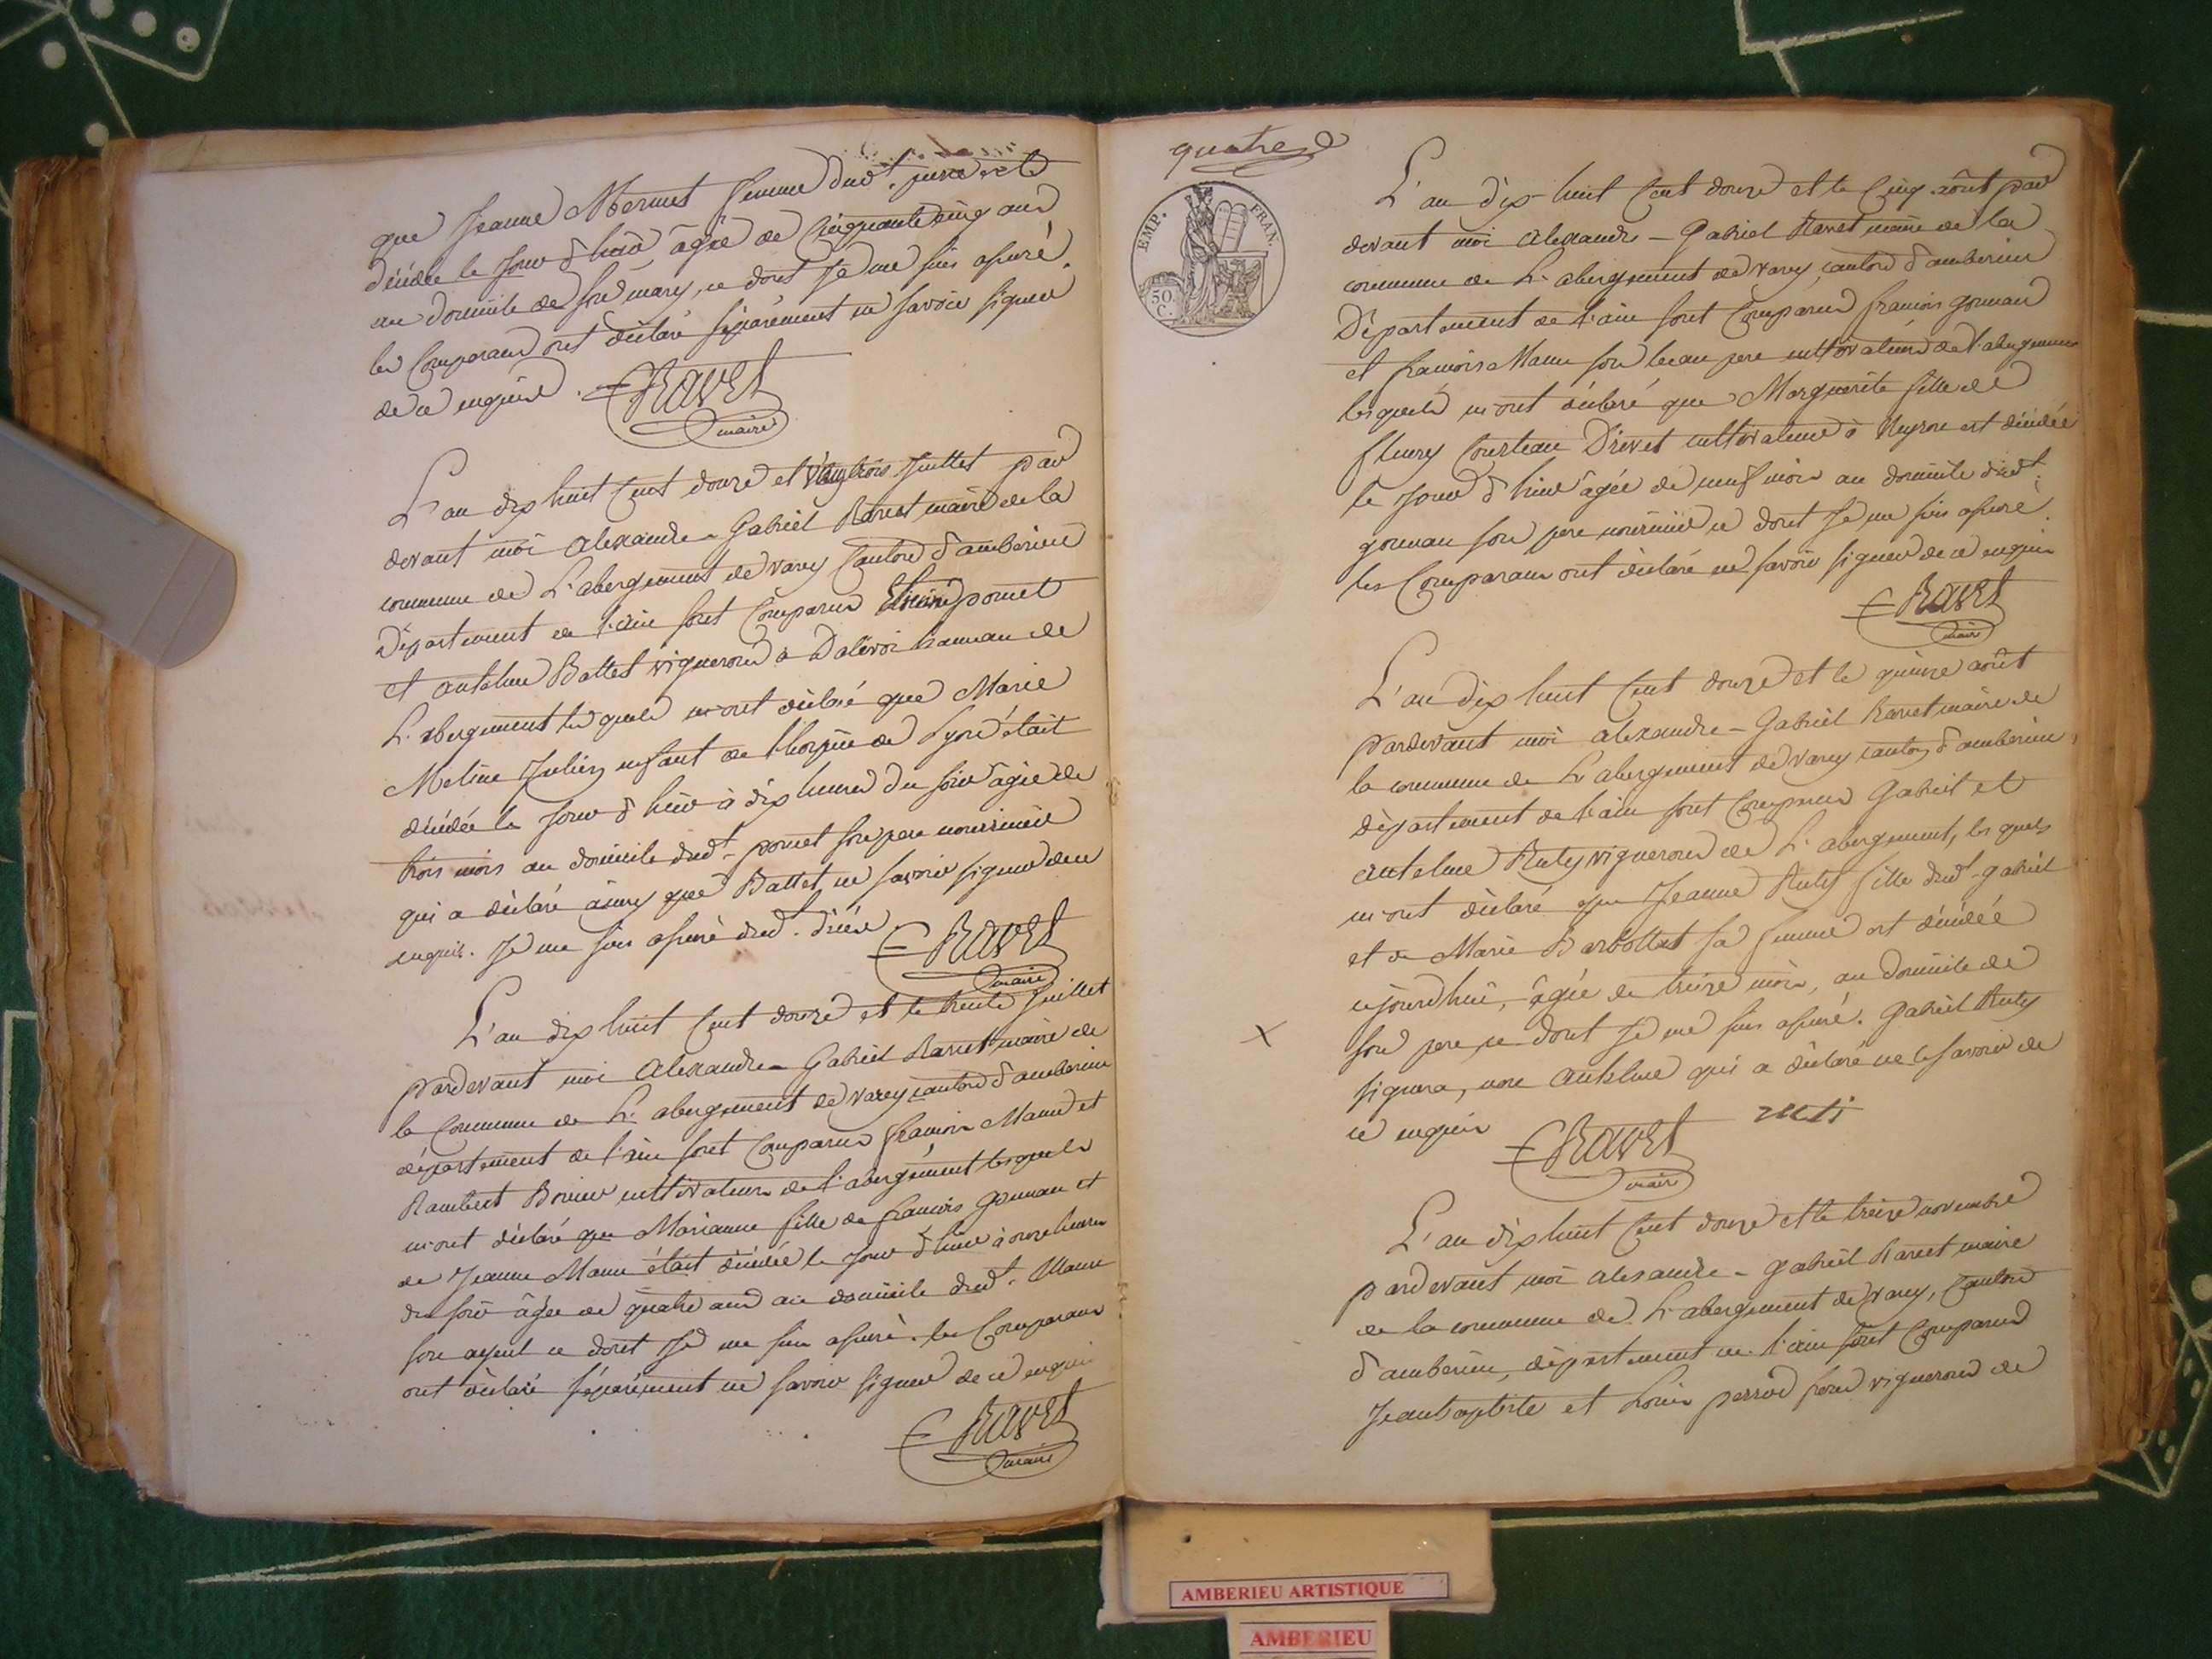 que Jeanne Mermet femme dud.t
décédée le jour d'huy âgée de Cinquante cinq ans
au domicile de son mary, ce dont je me suis assuré.
les Comparans ont déclaré séparément ne savoir signer
de ce enquis. Ravet
maire
L'an dix huit Cent douze et vingt trois Juillet par
devant moi alexandre-Gabriel Ravet maire de la
commune de L'abergement de varey Canton d'amberieu
Département de l'ain sont Comparus pomet
et antelme Battet vignerons à Dalivoi hameau de
L'abergement les quels m'ont déclaré que Marie
Meline Julien enfant de l'hospice de Lyon était
décédée le jour d'huy à dix heures du soir âgée de
trois mois au domicile dud.t pomet son pere nourricier
qui a déclaré ainsy que Battet ne savoir signer de ce
enquis. Je me suis assuré dud.t décés Ravet
maire
L'an dix huit Cent douze et le trente Juillet
pardevant moi Alexandre-Gabriel Ravet maire de
la Commune de L'abergement de varey canton d'amberieu
département de l'ain sont Comparus françois Manu et
Rambert cultivateurs de l'abergement lesquels
m'ont déclaré que Marianne fille de françois gounan et
de Jeanne Manu était décédée le jour d'huy à onze heures
du soir âgée de quatre ans au domicile dud.t Manu
son ayeul ce dont Je me suis assuré. les Comparans
ont déclaré séparément ne savoir signer de ce enquis
Ravet
maire
quatre
EMP. FRAN.
50 C.
L'an dix-huit Cent douze et le Cinq août par
devant moi alexandre-Gabriel Ravet maire de la
commune de L'abergement de varey, canton d'amberieu
Département de l'ain sont Comparus françois gounan
et françois Manu son beau pere cultivateurs de l'abergement
lesquels m'ont déclaré que Marguerite fille de
fleury Drevet cultivateur à Neyron est décédée
le jour d'huy âgée de neuf mois au domicile dud.t
gounan son pere nourricier ce dont Je me suis assuré.
les Comparans ont déclaré ne savoir signer de ce enquis
Ravet
maire
L'an dix huit Cent douze et le quinze août
pardevant moi alexandre-Gabriel Ravet maire de
la commune de L'abergement de varey canton d'amberieu,
département de l'ain sont Comparus Gabriel et
antelme Ruty vignerons de L'abergement, les quels
m'ont déclaré que Jeanne Ruty fille dud.t gabriel
et de Marie Barbollat sa femme est décédée
cejourd'hui, âgée de treize mois, au domicile de
son pere, ce dont Je me suis assuré. Gabriel Ruty
signera, non antelme qui a déclaré ne le savoir de
ce enquis Ravet ruti
maire
L'an dix huit Cent douze et le treize novembre
pardevant moi alexandre-gabriel Ravet maire
de la commune de L'abergement de varey, Canton
d'amberieu, département de l'ain sont Comparus
Jeanbaptiste et Louis perrod vignerons de
AMBERIEU ARTISTIQUE
AMBERIEU